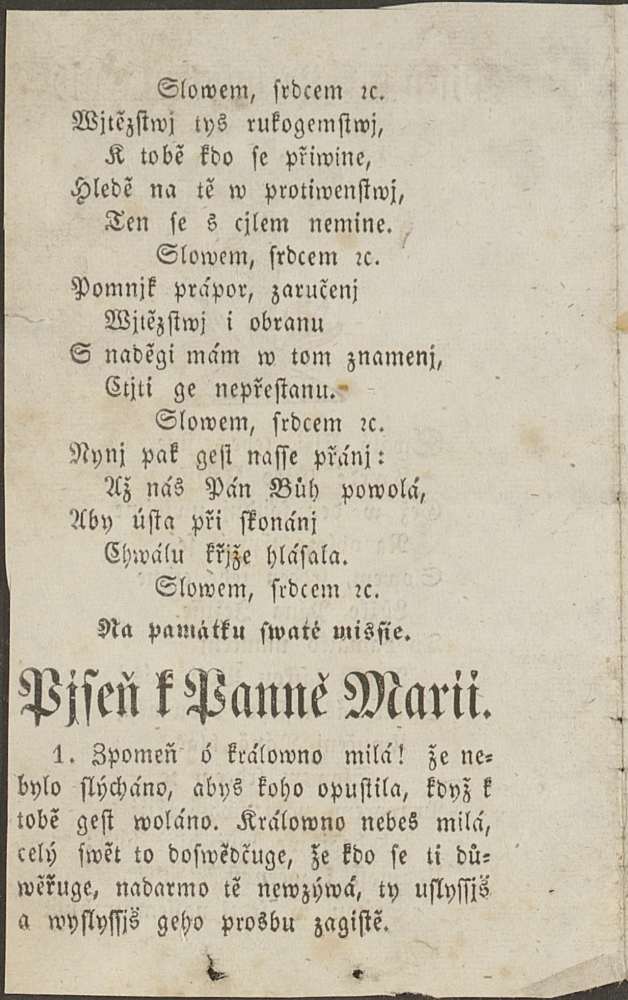 Slowem, srdcem ꝛc.
Wjtězstwj tys rukogemstwj,
K tobě kdo se přiwine,
Hledě na tě w protiwenstwj,
Ten se s cjlem nemine.
Slowem, srdcem ꝛc.
Pomnjk prápor, zaručenj
Wjtězstwj i obranu
S naděgi mám w tom znamenj,
Ctjti ge nepřestanu.
Slowem, srdcem ꝛc.
Nynj pak gest nasse přánj:
Až nás Pán Bůh powolá,
Aby ústa při skonánj
Chwálu křjže hlásala.
Slowem, srdcem ꝛc.
Na památku swaté missie.
Pjseň k Panně Marii.
1. Zpomeň ó králowno milá! že ne-
bylo slýcháno, abys koho opustila, když k
tobě gest woláno. Králowno nebes milá,
celý swět to doswědčuge, že kdo se ti dů-
wěřuge, nadarmo tě newzýwá, ty uslyssjš
a wyslyssjš geho prosbu zagistě.